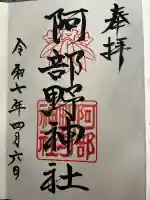 奉拝
阿部野神社
阿部
野神
社印
令和七年四月六日